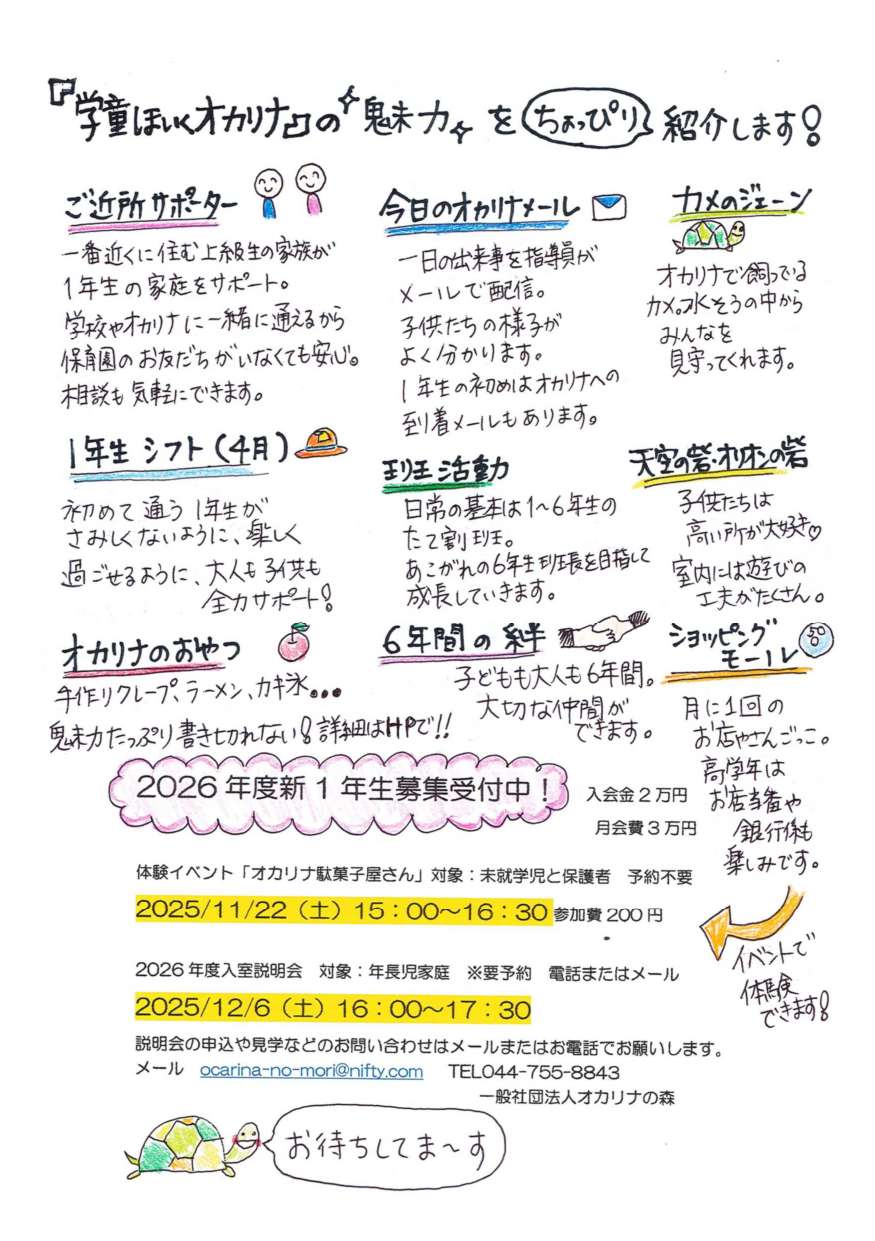 『学童ほいくオカリナ』の魅力をちょっぴり紹介します!
ご近所サポーター
一番近くに住む上級生の家族が
1年生の家庭をサポート。
学校やオカリナに一緒に通えるから
保育園のお友だちがいなくても安心。
相談も気軽にできます。
今日のオカリナメール
一日の出来事を指導員が
メールで配信。
子供たちの様子が
よく分かります。
1年生の初めはオカリナへの
到着メールもあります。
カメのジェーン
オカリナで飼っている
カメ。水そうの中から
みんなを
見守ってくれます。
1年生シフト(4月)
初めて通う1年生が
さみしくないように、楽しく
過ごせるように、大人も子供も
全力サポート!
班活動
日常の基本は1~6年生の
たて割班。
あこがれの6年生班長を目指して
成長していきます。
天空の砦・オリオンの砦
子供たちは
高い所が大好き♡
室内には遊びの
工夫がたくさん。
オカリナのおやつ
手作りクレープ、ラーメン、カキ氷...
魅力たっぷり書き切れない!詳細はHPで!!
6年間の絆
子どもも大人も6年間。
大切な仲間が
できます。
ショッピング
モール
50
月に1回の
お店やさんごっこ。
高学年は
お店当番や
銀行係も
楽しみです。
イベントで
体験
できます!
2026年度新1年生募集受付中!
入会金2万円
月会費3万円
体験イベント「オカリナ駄菓子屋さん」対象:未就学児と保護者 予約不要
2025/11/22(土)15:00~16:30 参加費200円
2026年度入室説明会 対象:年長児家庭 ※要予約 電話またはメール
2025/12/6(土)16:00~17:30
説明会の申込や見学などのお問い合わせはメールまたはお電話でお願いします。
メール ocarina-no-mori@nifty.com TEL044-755-8843
一般社団法人オカリナの森
お待ちしてま~す